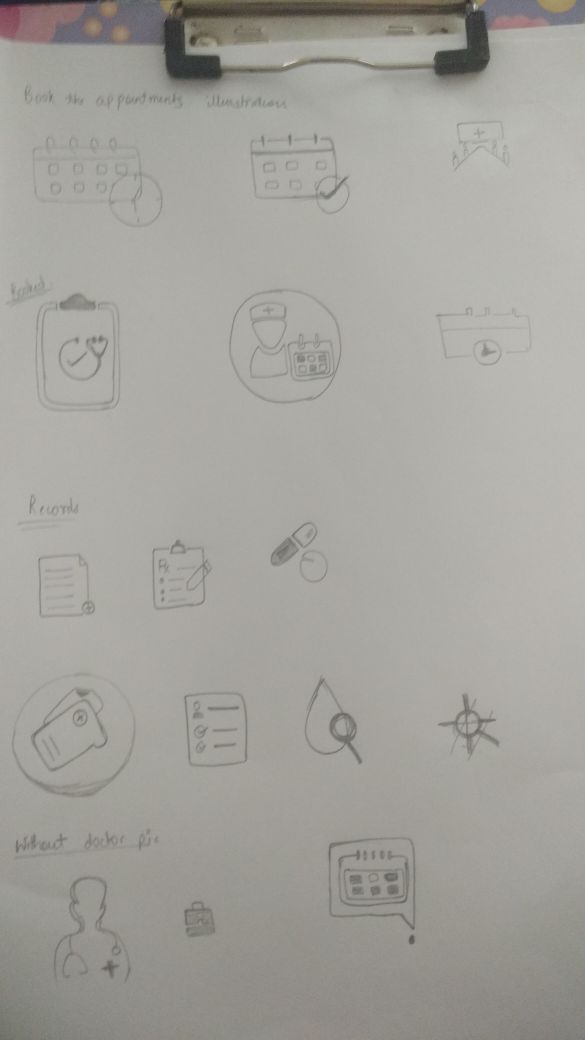 Book the appointments illustrations
Booked
Records
Rx
Without doctor pic